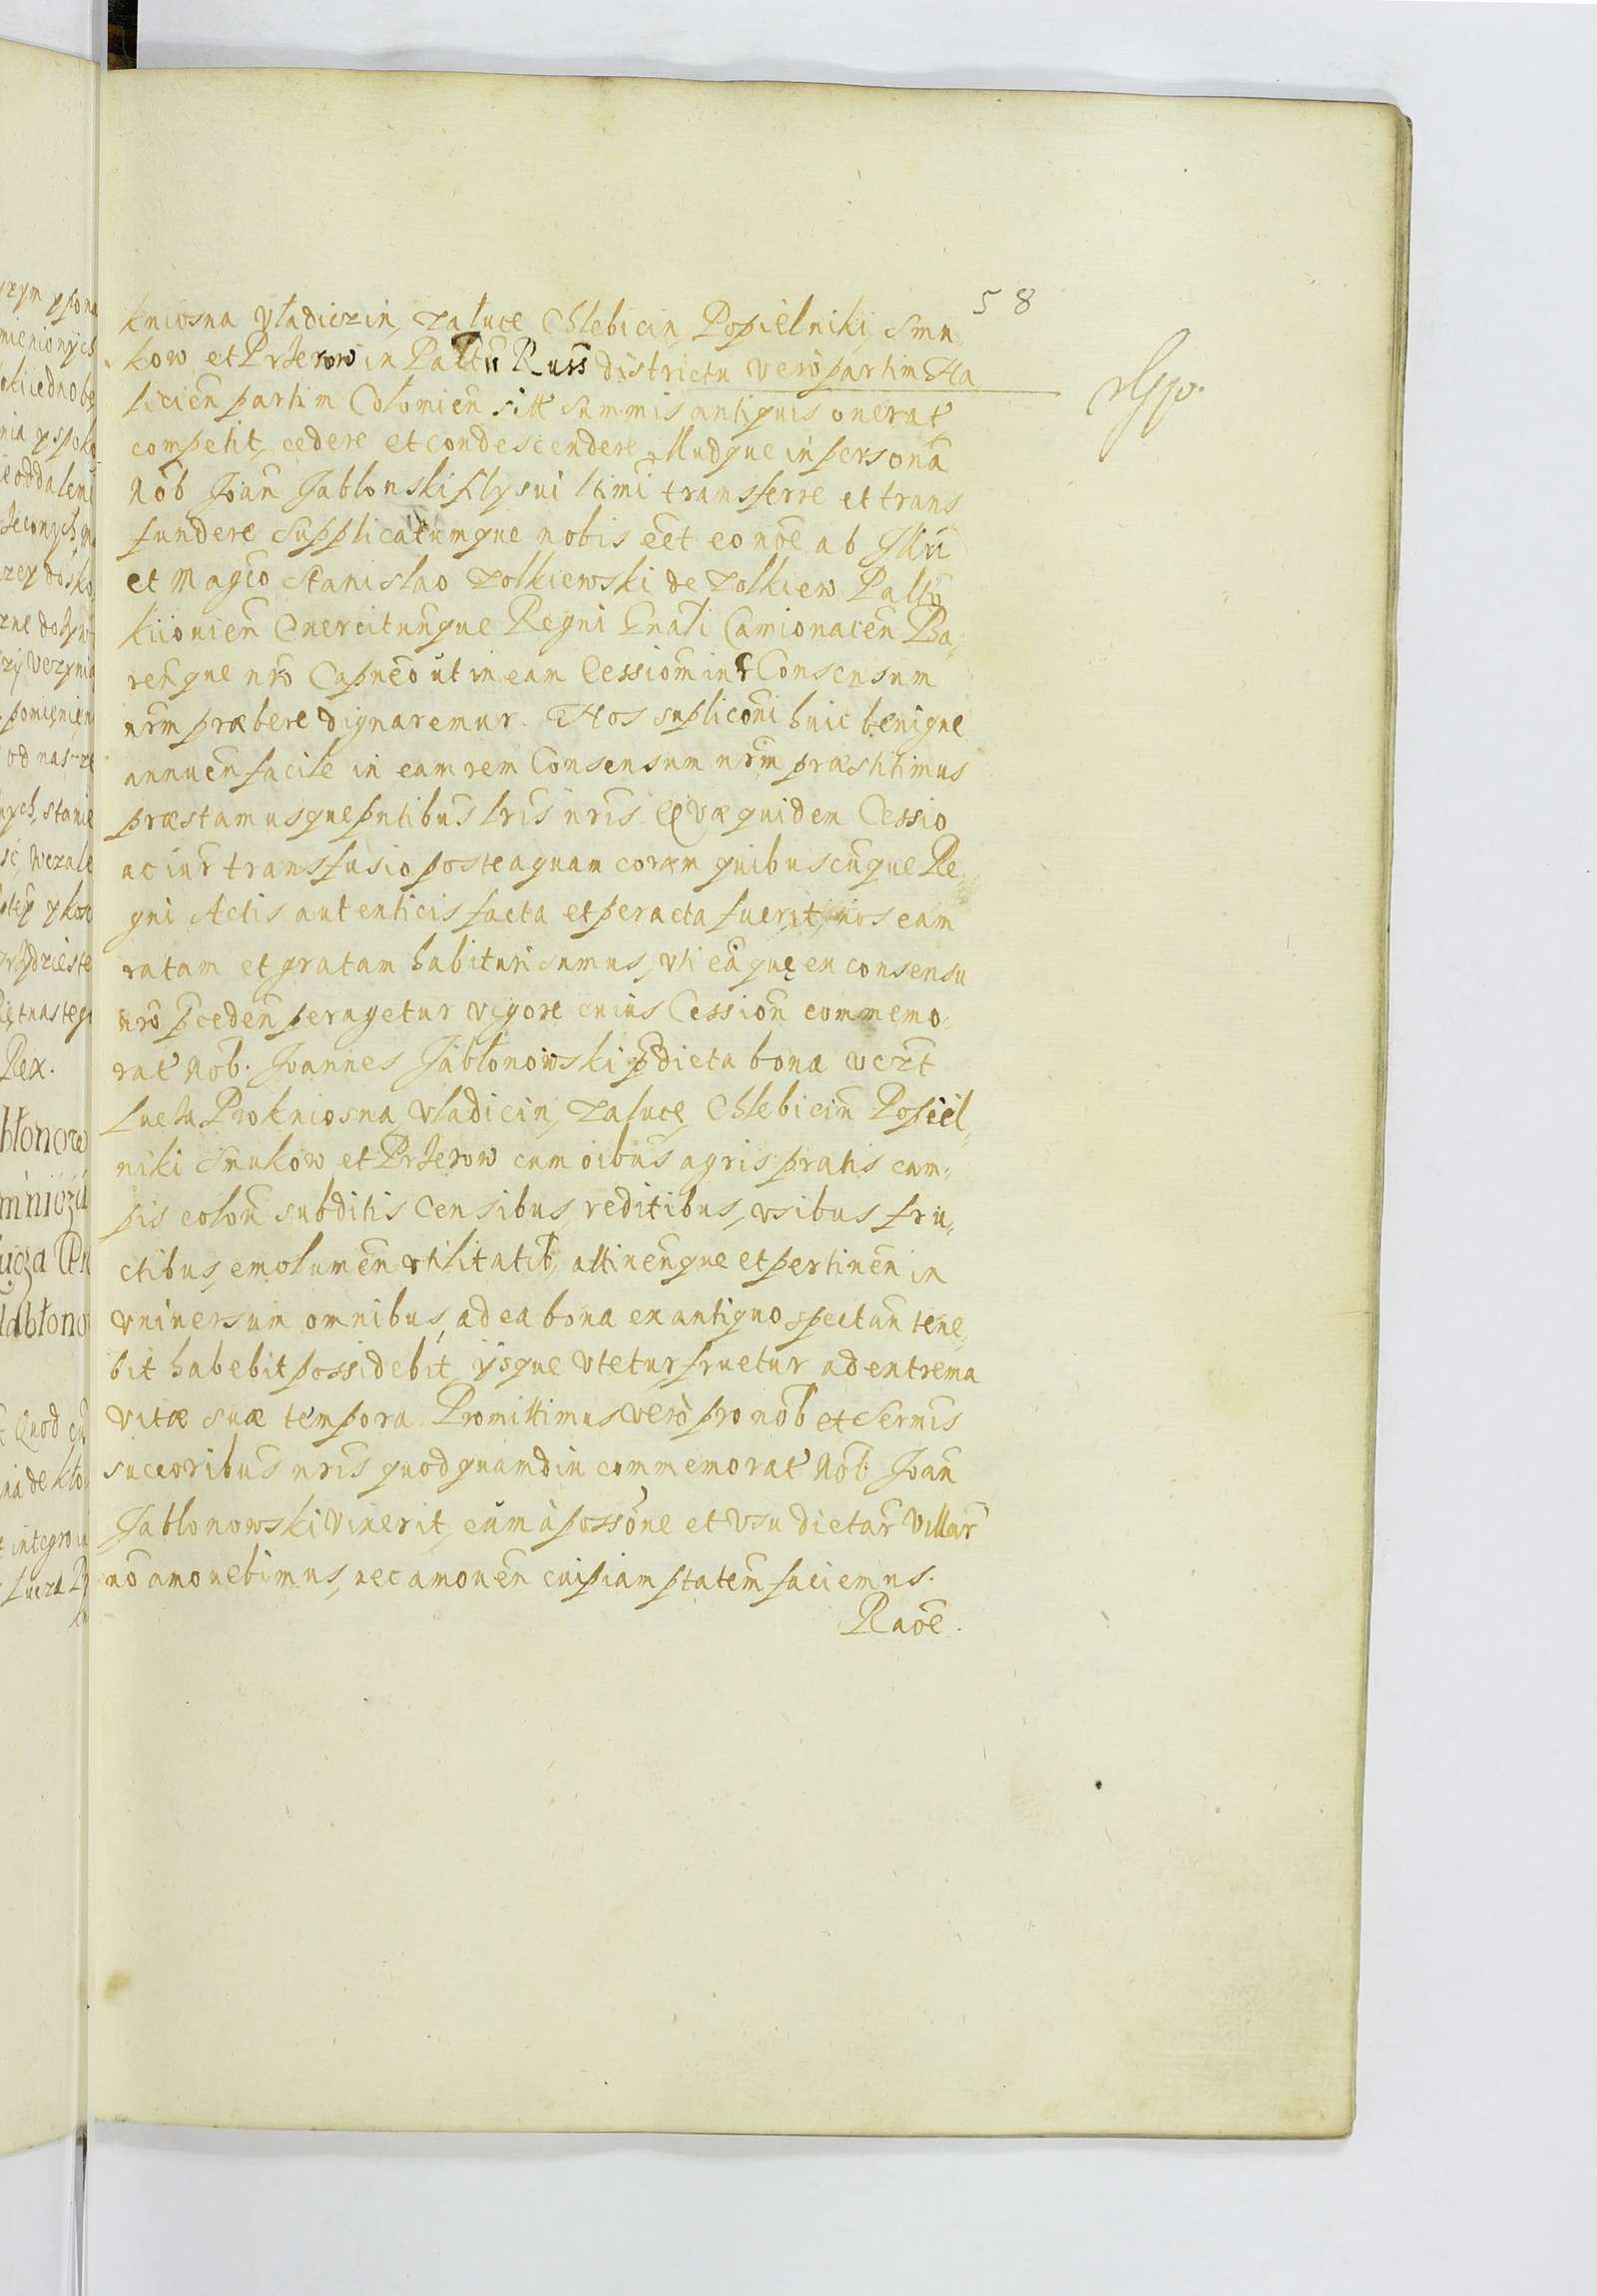 58
kniosna Vladiczin, Załuce Chlebicin, Popielniki, Smu„
kow et Prterow in Paltū Russ districtu vero partim Ha
licień partim Colomień sitt summis antiquis onerat
competit, cedere et condescendere illudque in personā
Nōb Joań Jablonski filÿ sui ltimi transferre et trans
fundere Supplicatumque nobis eēt eo nōe ab Illri
et Magco Stanislao Zolkiewski de Zolkiew Paltō
Kiiouień Exercitunque Regni Gnali Camionaceń Ba„
renque nro Capneo ut in eam Cessiom iur Consensum
nrm præbere dignaremur. Nos supliconi huic benigne
annueń facile in eam rem Consensum nrm præstitimus
præstamusque pntibus lris nris. Quæ quidem Cessio
ac iur transfusio posteaquam coram quibuscunque Re„
gni Actis autenticis facta et peracta fuerit, nos eam
ratam et gratam habituri sumus, vti ea quę ex consensu
nro pcedeń peragetur vigore cuius Cession commemo„
rat Nob. Joannes Jabłonowski pdicta bona vczt
Luctu Prokniosna, Vladicin, Załuce, Chlebicin Popiel„
niki Smukow et Prterow cum oibus agris pratis cam„
pis coloń subditis Censibus, reditibus, vsibus fru„
ctibus, emolumeń vtilitatib, attinenque et pertineń in
vniuersum omnibus, ad ea bona ex antiquo spectań tene„
bit habebit possidebit, ijsque vtetur fruetur ad extrema
vitæ suæ tempora. Promittimus vero pro nob et Sermis
succoribus nris quod quamdiu commemorat Nob. Joań
Jablonowski vixerit, eum a possone et vsu dictar Villar
no amouebimus, nec amoueń cuipiam ptatem faciemus.
Raoe.